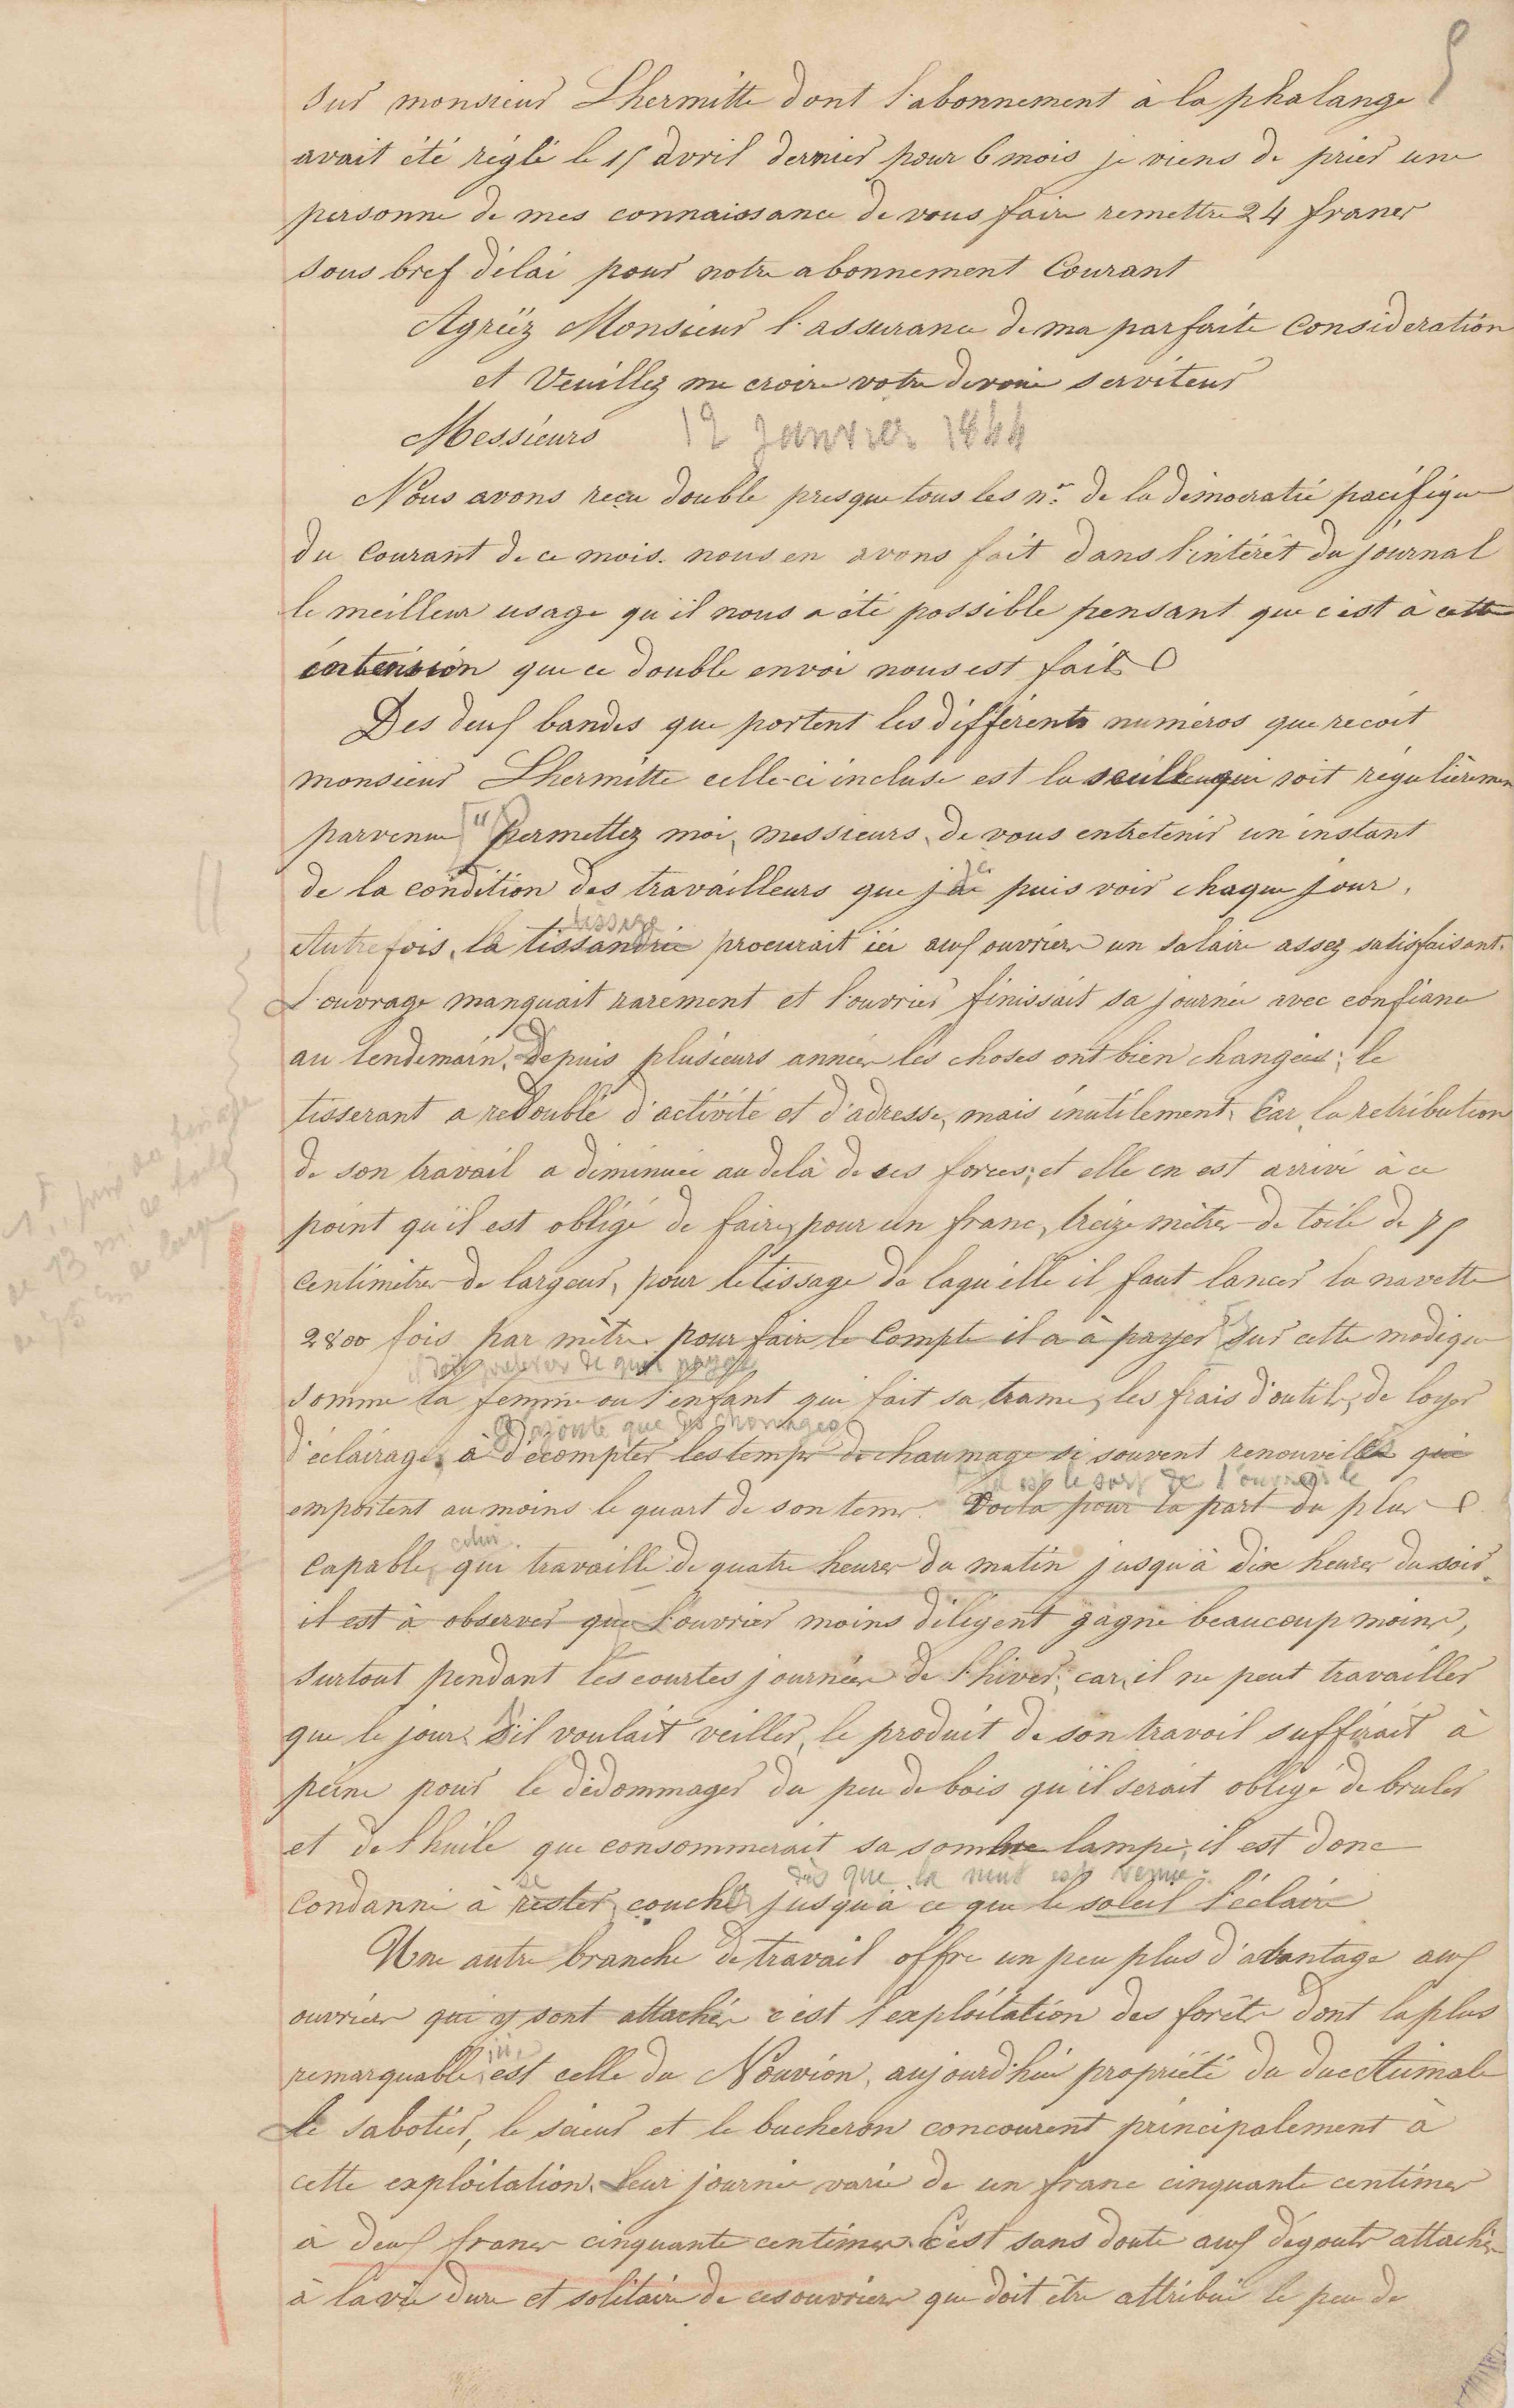 5
sur monsieur Lhermitte dont l'abonnement à la phalange
avait été réglé le 15 avril dernier pour 6 mois je viens de prier une
personne de mes connaissance de vous faire remettre 24 francs
sous bref délai pour notre abonnement Courant
Agréez Monsieur l'assurance de ma parfaite Considération
et Veuillez me croire votre devoué serviteur
Messieurs 12 Janvier 1844
Nous avons reçu double presque tous les nos de la démocratie pacifique
du Courant de ce mois. nous en avons fait dans l'intérêt du journal
le meilleur usage qu'il nous a été possible pensant que c'est à cette
intension que ce double envoi nous est fait
Des deux bandes que portent les différents numéros que recoit
monsieur Lhermitte celle-ci incluse est la seule qui soit régulièremen
parvenue " Permettez moi, messieurs, de vous entretenir un instant
de la condition des travailleurs que je puis voir chaque jour.
tissage
Autrefois, la tissandrie procurait ici aux ouvriers un salaire assez satisfaisant.
L'ouvrage manquait rarement et l'ouvrier finissait sa journée avec confiance
au lendemain. Depuis plusieurs années les choses ont bien changées; le
tisserant a redoublé d'activité et d'adresse, mais inutilement, Car, la retribution
de son travail a diminuée au delà de ses forces; et elle en est arrivé à ce
point qu'il est obligé de faire, pour un franc, treize mètres de toile de 75
1 F pour
de 13 m. de toile
de 75 cm de large
Centimètres de largeur, pour le tissage de laquelle il faut lancer la navette
2800 fois par mètre. pour faire le Compte il a à payer Sur cette modique
il doit prelever de quoi payer
somme la femme ou l'enfant qui fait sa trame, les frais d'outils, de loyer
J'ajoute que les chomages
d'éclairage, à décompter les temps de chaumage si souvent renouvellés qui
emportent au moins le quart de son tems. Voila pour la part du plus
tel est le sort de l'ouvrier le
celui
Capable, qui travaille de quatre heures du matin jusqu'à dix heures du soir.
il est à observer que L'ouvrier moins diligent gagne beaucoup moins,
surtout pendant les courtes journées de l'hiver; car, il ne peut travailler
que le jour. S'il voulait veiller, le produit de son travail suffirait à
peine pour le dédommager du peu de bois qu'il serait obligé de bruler
et de l'huile que consommerait sa sombre lampe; il est donc
se dès que la nuit est venue.
Condanné à rester couché jusqu'à ce que le soleil l'éclaire
Une autre branche de travail offre un peu plus d'avantage aux
ouvriers qui y sont attachés c'est l'exploitation des forêts dont la plus
remarquable, est celle du Nouvion, aujourd'hui propriété du duc d'Aumale
Le sabotier, le scieur et le bucheron concourent principalement à
cette exploitation. Leur journée varie de un franc cinquante centimes
à deux francs cinquante centimes. C'est sans doute aux dégouts attachés
à la vie dure et solitaire de ces ouvriers que doit être attribué le peu de